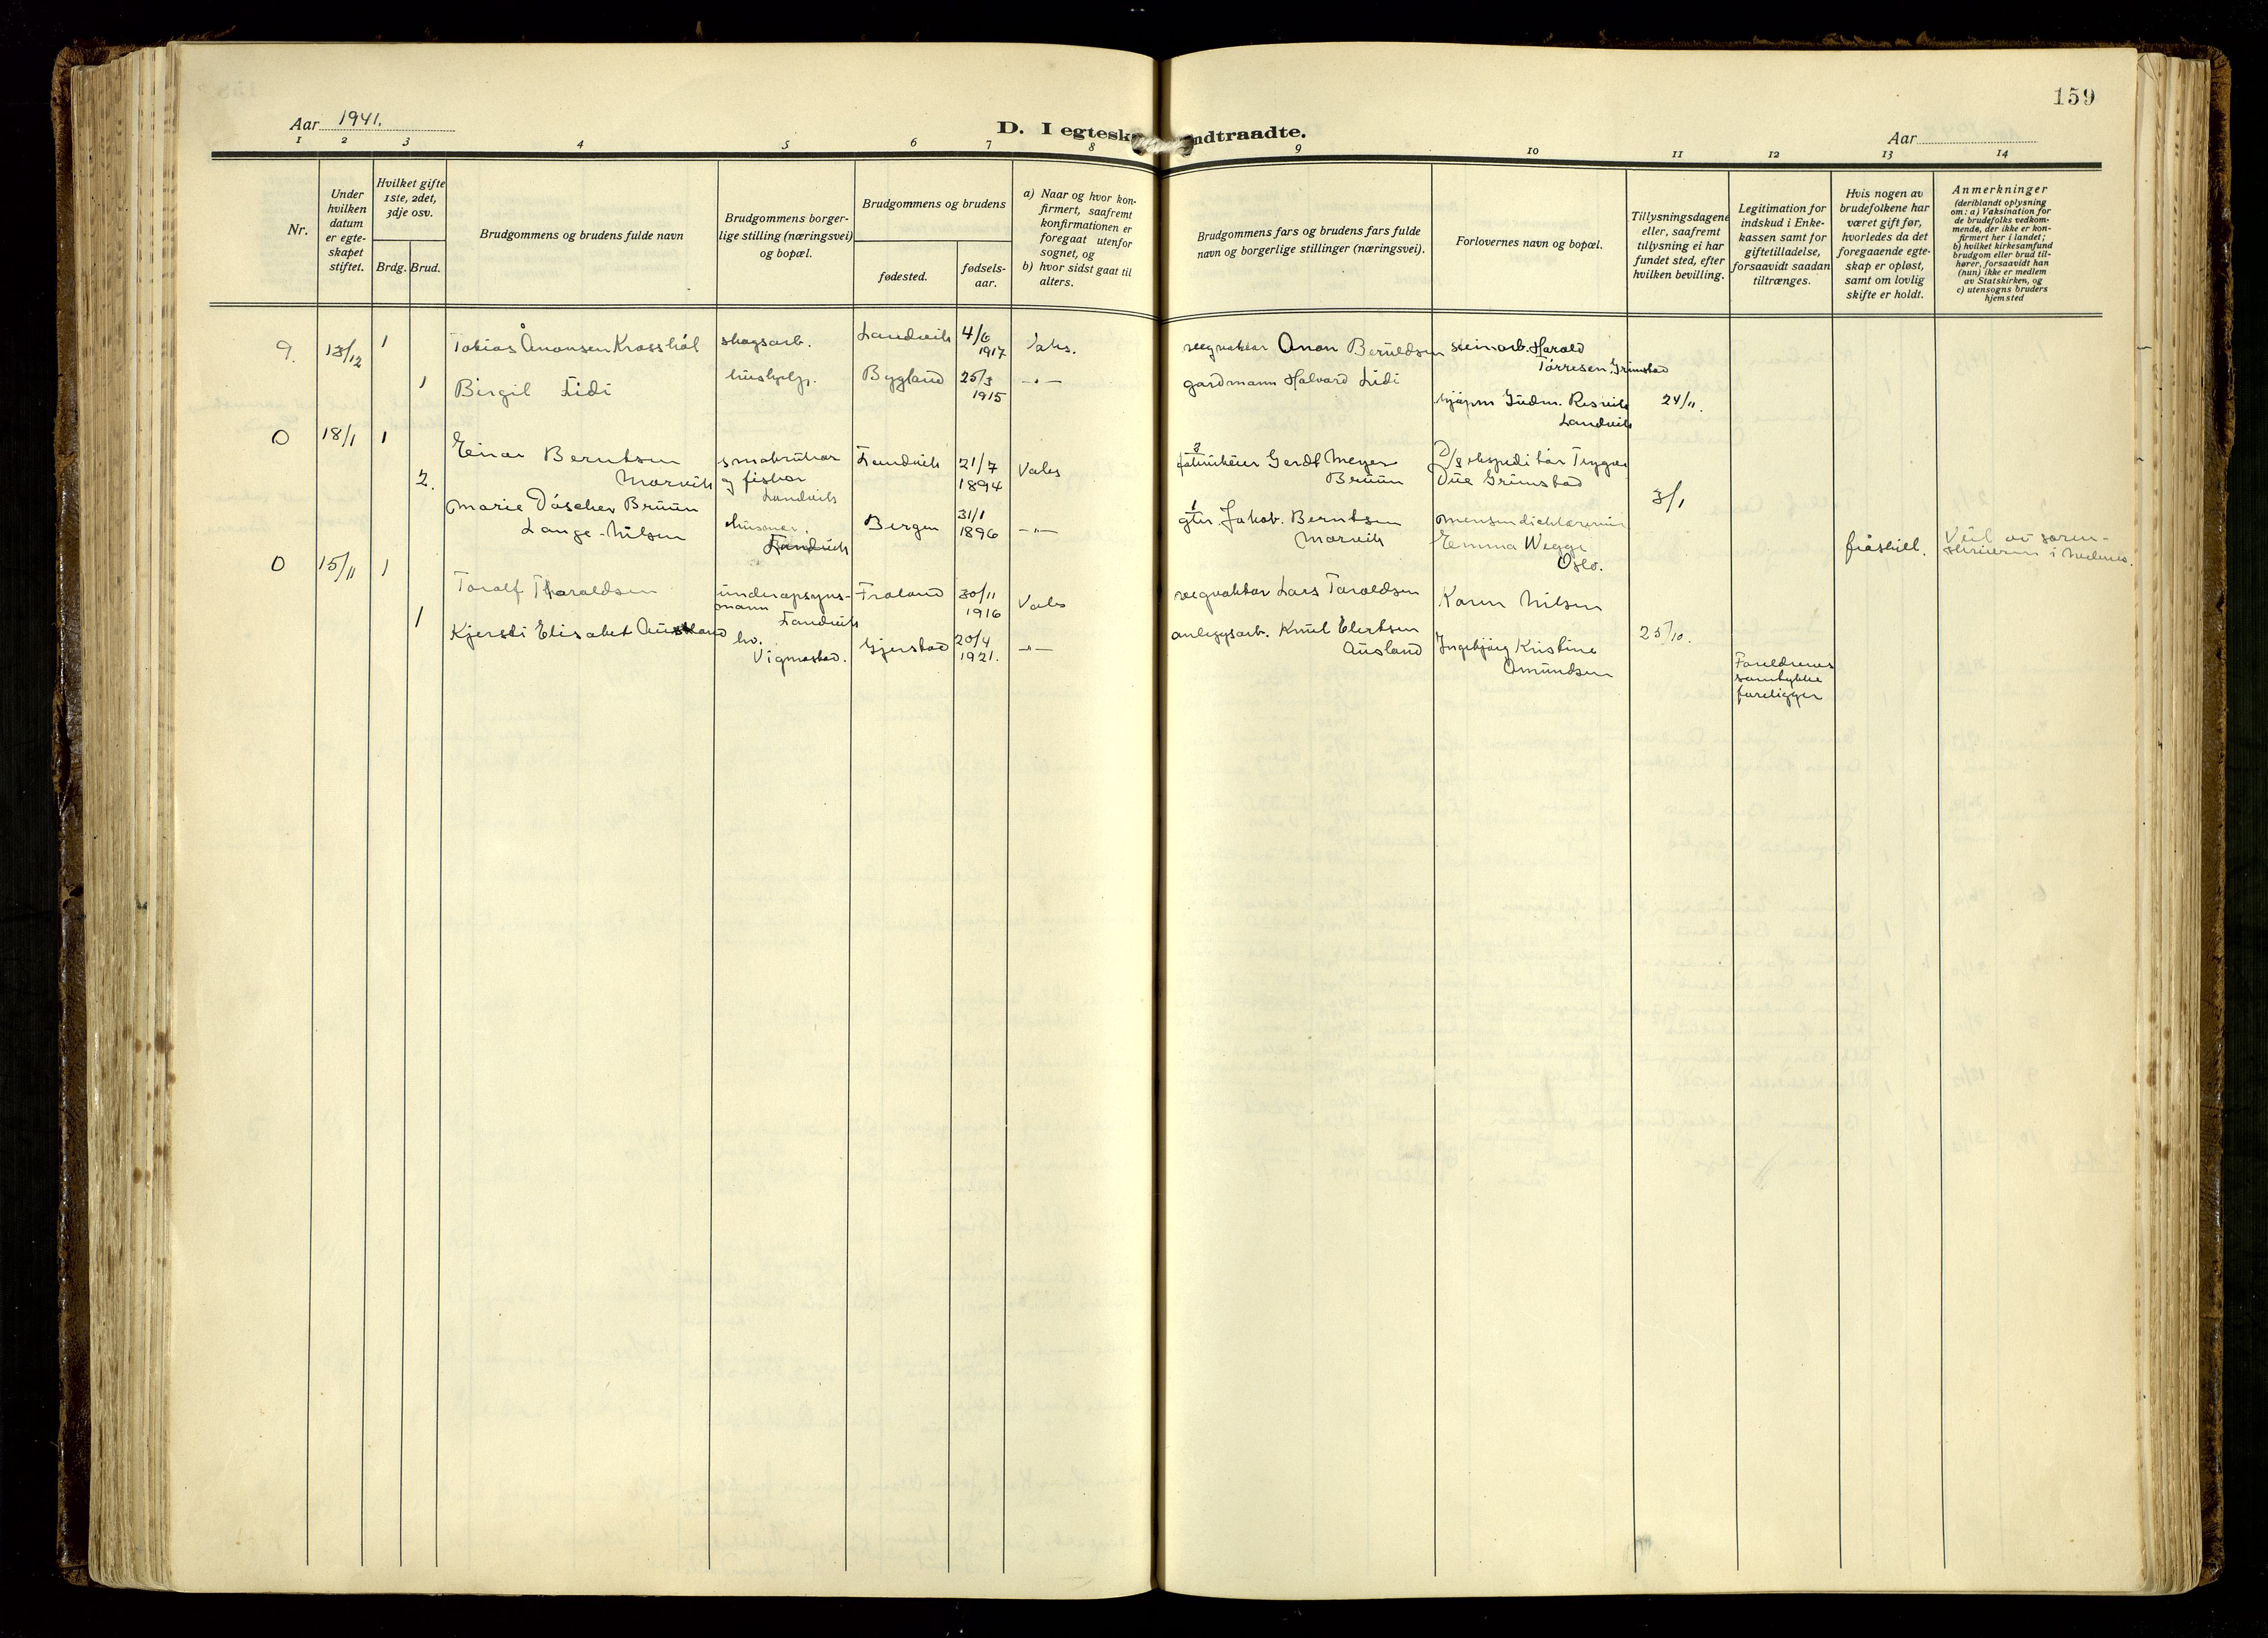 159
Aar 1941.
D. I egtesk
ndtraadte.
Aar
1 2 3 4 5 6 7 8 9 10 11 12 13 14
Nr.
Under
hvilken
datum
er egte-
skapet
stiftet.
Hvilket gifte
1ste, 2det,
3dje osv.
Brdg. Brud.
Brudgommens og brudens fulde navn
Brudgommens borger-
lige stilling (næringsvei)
og bopæl.
Brudgommens og brudens
fødested.
fødsels-
aar.
a) Naar og hvor kon-
firmert, saafremt
konfirmationen er
foregaat utenfor
sognet, og
b) hvor sidst gaat til
alters.
Brudgommens fars og brudens fars fulde
navn og borgerlige stillinger (næringsvei).
Forlovernes navn og bopæl.
Tillysningsdagene
eller, saafremt
tillysning ei har
fundet sted, efter
hvilken bevilling.
Legitimation for
indskud i Enke-
kassen samt for
giftetilladelse,
forsaavidt saadan
tiltrænges.
Hvis nogen av
brudefolkene har
været gift før,
hvorledes da det
foregaaende egte-
skap er opløst,
samt om lovlig
skifte er holdt.
Anmerkninger
(deriblandt oplysning
om: a) Vaksination for
de brudefolks vedkom-
mende, der ikke er kon-
firmert her i landet;
b) hvilket kirkesamfund
brudgom eller brud til-
hører, forsaavidt han
(hun) ikke er medlem
av Statskirken, og
c) utensogns bruders
hjemsted
9. 13/12 1 Tobias Ånonsen Krosshål skogsarb. Landvik 4/6
1917
vegvaktar Anon Beruldsen steinarb. Harald
Torresen, Grimstad
1 Birgit Lidi hushjelp. Bygland 25/3
1915 -"-
gardmann Halvard Lidi
Gudm. Resvik
Landvik
24/11.
0 18/1 1 Einar Berntsen
Morvik
småbrukar
og fiskar
Landvik
Landvik 21/7
1894 Vaks
2
Gerdt Meyer
Bruun
Trygve
Due Grimstad
3/1
2. Marie Döscher Bruun
Lange-Nilsen
husmor.
Landvik
Bergen 31/1
1896 -"-
1
gbr. Jakob Berntsen
Morvik
Emma Wegge
Oslo.
fråskill.
Veil av soren-
skrivaren i Nedenes.
0 15/11 1 Toralf Tharaldsen underopsyns-
mann
Landvik
Froland 30/11
1916 Vaks
vegvaktar Lars Taraldsen Karen Nilsen
1 Kjersti Elisabet Ausland hv.
Vigmostad.
Gjerstad 20/4
1921. -"-
anleggsarb. Knut Elertsen
Ausland
Ingebjørg Kristine
Omundsen
25/10.
Foreldrenes
samtykke
foreligger